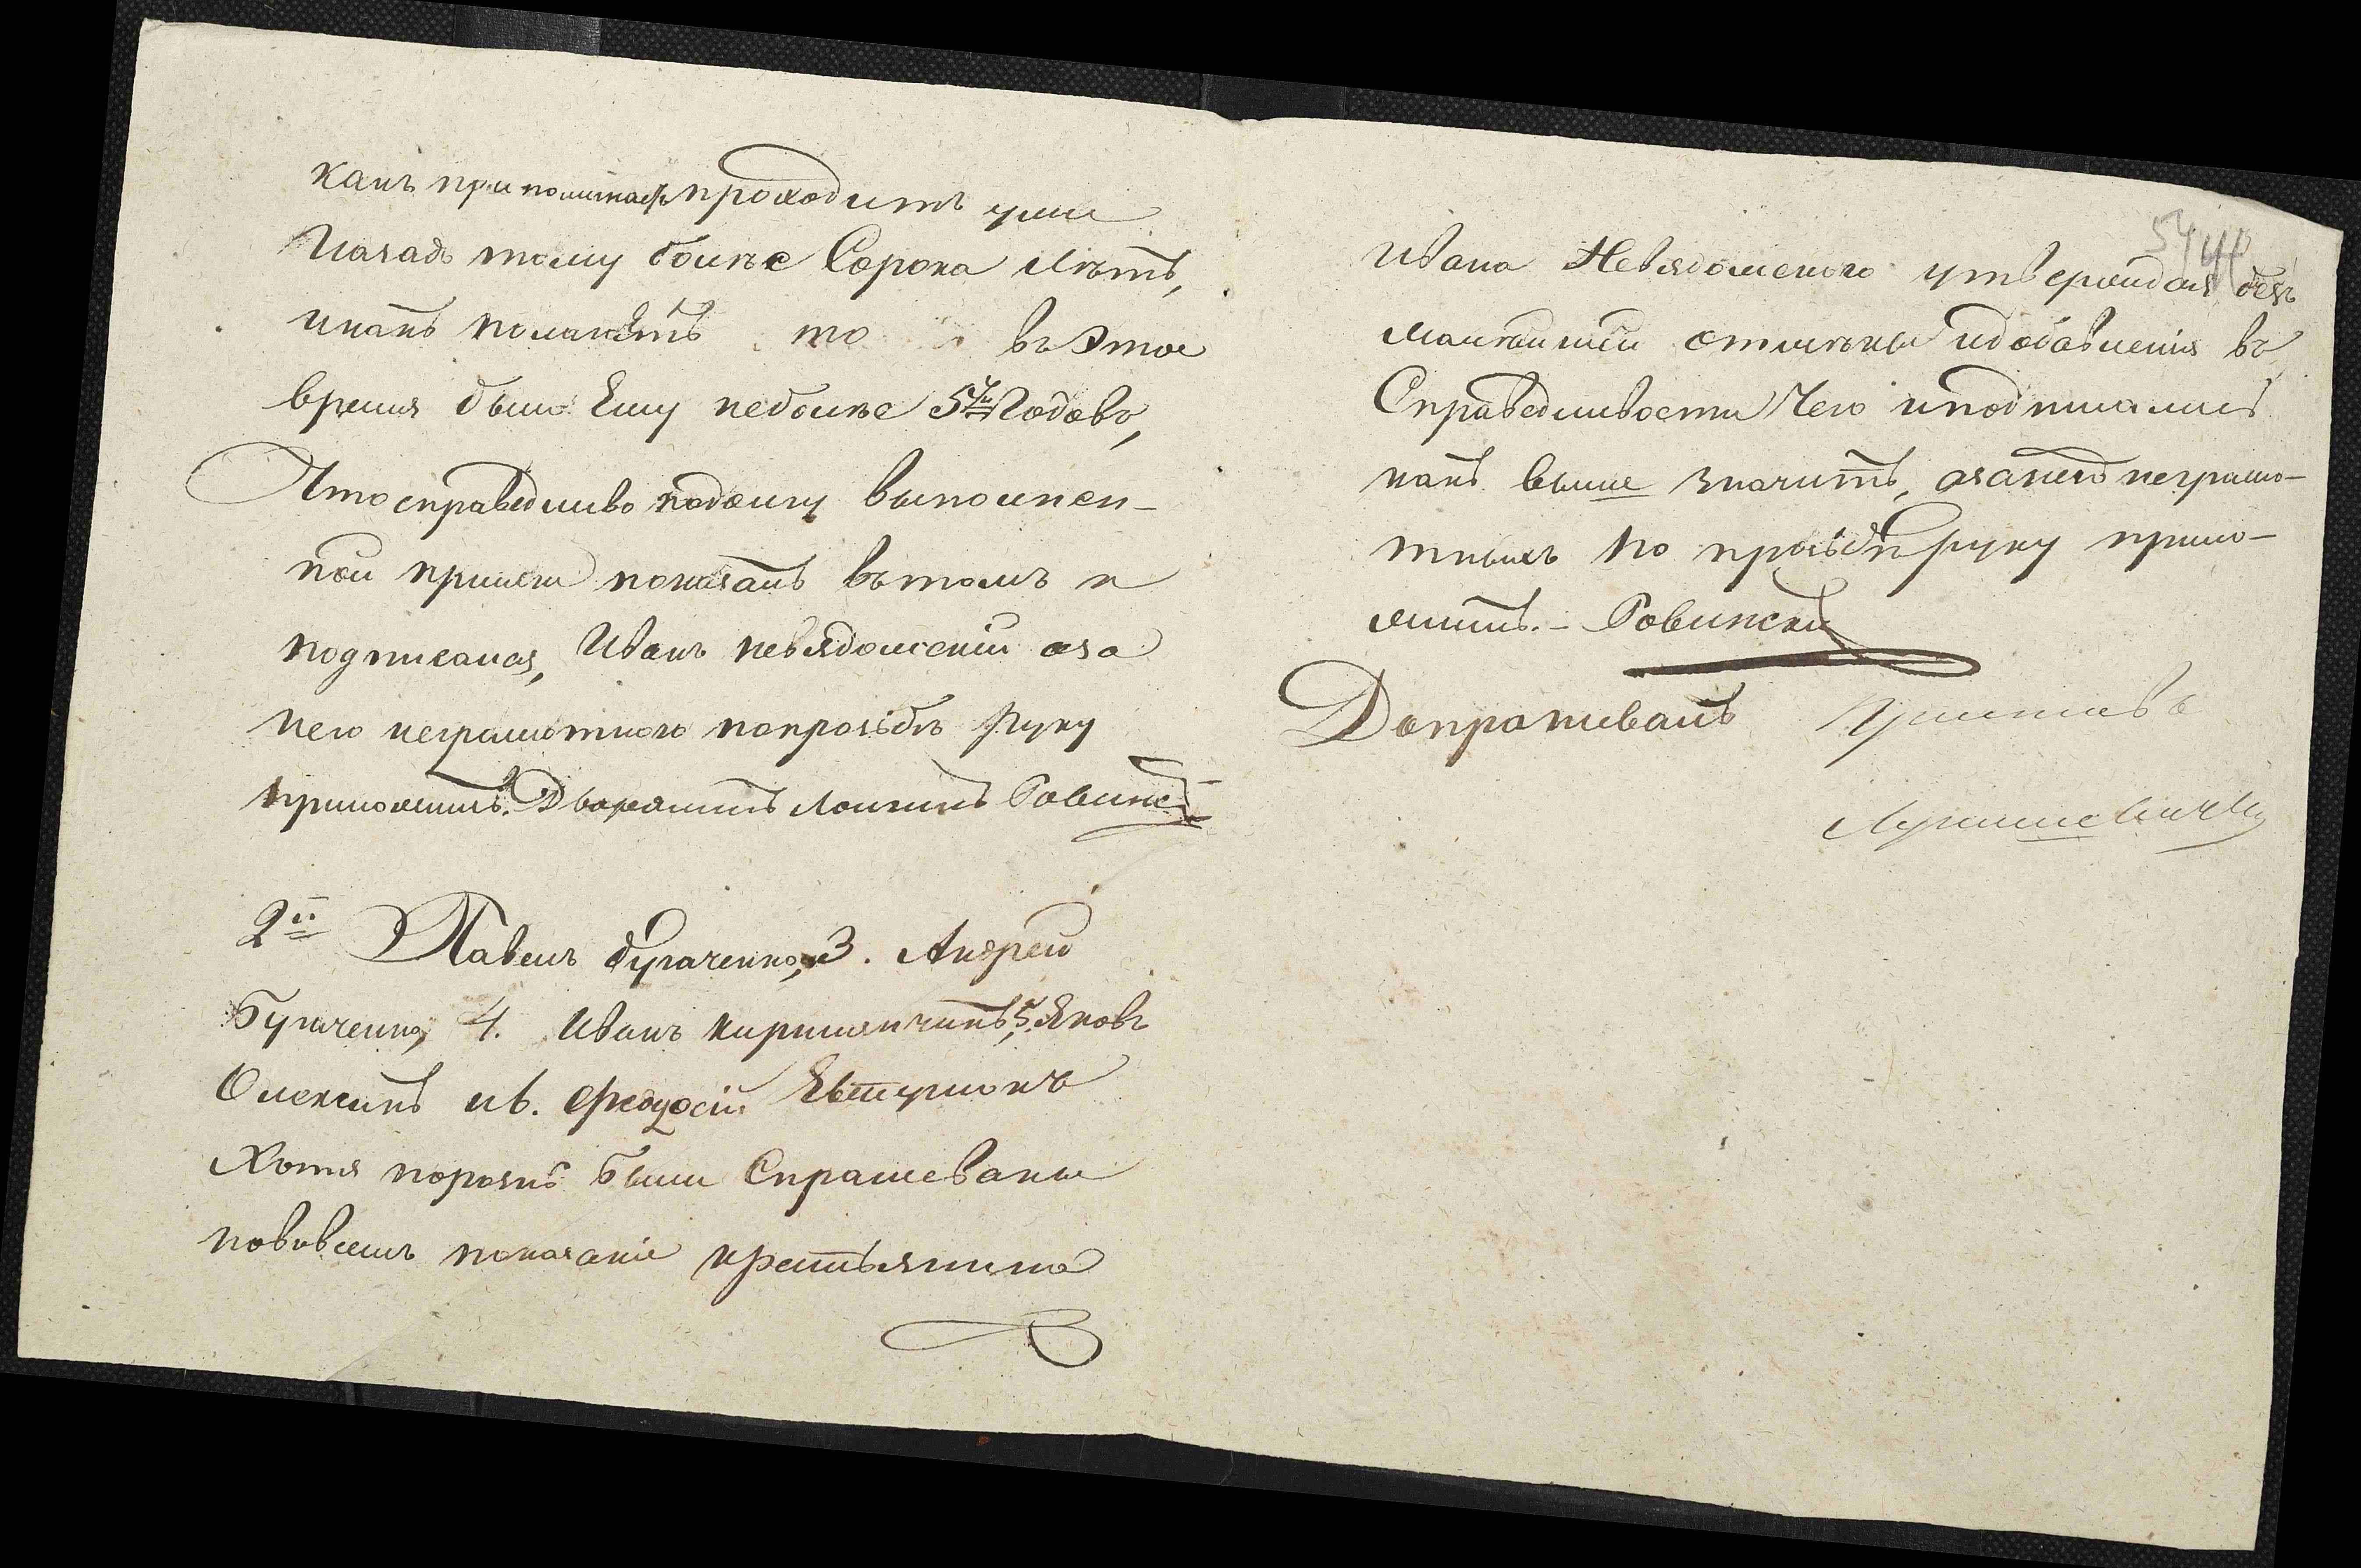 какъ припоминаетъ проходитъ уже
Назадъ тому болѣе Сорока Лѣтъ,
икакъ помнитъ то въ Этое
время было Ему неболѣе 5ти Годовъ,
Что справедливо подолгу выполнен-
ной присяги показалъ вътомъ и
подписался, Иванъ невядомскій аза
него неграмотного попрозьбѣ Руку
приложилъ. Дворянинъ Логинъ Ровинск
2й Павелъ Бугаченко, 3. Андрей
Бугаченко, 4. Иванъ Кирилянчикъ, 5. Яковъ
Олексинъ и 6. Феодосій Явтушокъ
Хотя порознь были Спрашеваны
повсѣмъ показаніе крестьянина
Ивана Невядомского утверждая безъ
малѣйшей отмѣны идобавленія въ
Справедливости Чего иподписались
какъ выше значитъ, азанихъ неграмо-
тныхъ по прозьбѣ руку прило-
жилъ. - Ровински
Допрашивалъ Приставъ
Лукашевичъ